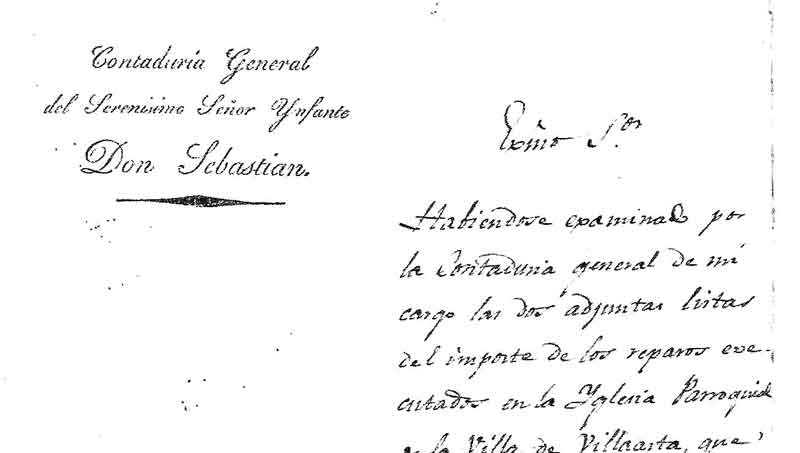 Contaduría General
del Serenisimo Señor Ynfante
Don Sebastian.
Exmo Sor
Habiendose examinado por
la Contaduria general de mi
cargo las dos adjuntas listas
del importe de los reparos exe-
cutados en la Yglesia Parroquial
la Villa de Villarta, que